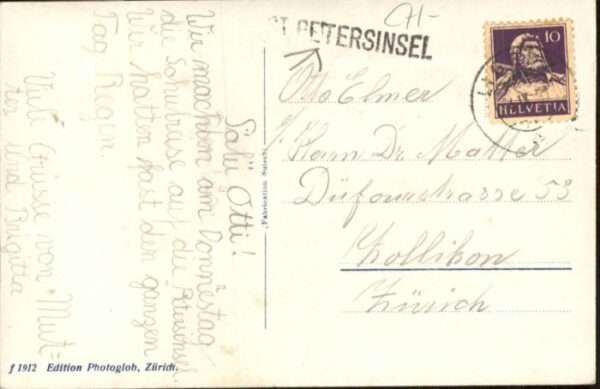 Salü Otti!
Wir machten am Donnestag
die Schulreise auf die Petersinsel
Wir hatten fast den ganzen
Tag Regen.
Viele Grüsse von Mut=
ter und Brigitta
f 1912 Edition Photoglob, Zürich.
(Fabrication Suisse)
ST. PETERSINSEL
CH-
10
HELVETIA
Otto Elmer
Dr. Matter
Dufourstrasse 53
Zollikon
Zürich